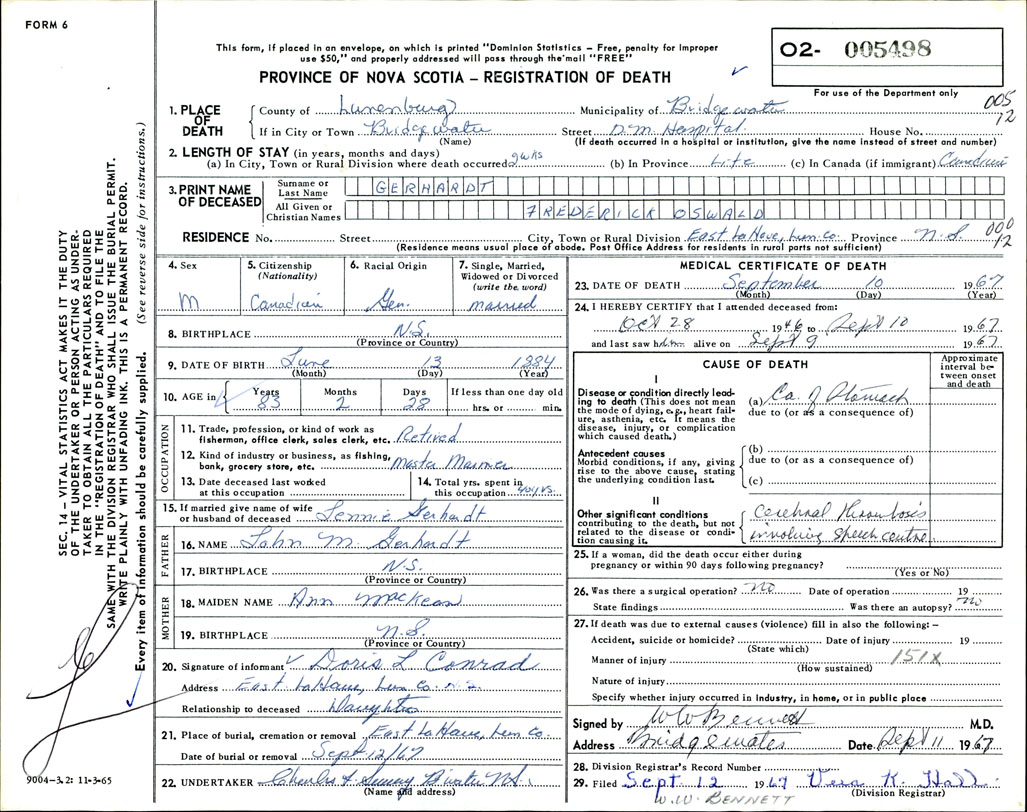 FORM 6
This form, if placed in an envelope, on which is printed "Dominion Statistics – Free, penalty for improper
use $50," and properly addressed will pass through the mail "FREE"
PROVINCE OF NOVA SCOTIA – REGISTRATION OF DEATH
02- 005498
For use of the Department only
005
12
1. PLACE OF DEATH
County of Lunenburg Municipality of Bridgewater
If in City or Town Bridgewater Street D.M. Hospital House No.
(Name) (If death occurred in a hospital or institution, give the name instead of street and number)
2. LENGTH OF STAY (in years, months and days)
(a) In City, Town or Rural Division where death occurred 9 wks (b) In Province Life (c) In Canada (if immigrant) Canadian
3. PRINT NAME OF DECEASED
Surname or Last Name GERHARDT
All Given or Christian Names FREDERICK OSWALD
000
12
RESIDENCE No. Street City, Town or Rural Division East LaHave, Lun. Co. Province N.S.
(Residence means usual place of abode. Post Office Address for residents in rural parts not sufficient)
4. Sex M
5. Citizenship (Nationality) Canadian
6. Racial Origin Ger.
7. Single, Married, Widowed or Divorced (write the word) married
8. BIRTHPLACE N.S.
(Province or Country)
9. DATE OF BIRTH June 13 1884
(Month) (Day) (Year)
10. AGE in Years 83 Months 2 Days 28 If less than one day old hrs. or min.
OCCUPATION
11. Trade, profession, or kind of work as
fisherman, office clerk, sales clerk, etc. Retired
12. Kind of industry or business, as fishing,
bank, grocery store, etc. Master Mariner
13. Date deceased last worked
at this occupation
14. Total yrs. spent in
this occupation 40 yrs.
15. If married give name of wife
or husband of deceased Jennie Gerhardt
FATHER
16. NAME John M. Gerhardt
17. BIRTHPLACE N.S.
(Province or Country)
MOTHER
18. MAIDEN NAME Ann MacKean
19. BIRTHPLACE N.S.
(Province or Country)
20. Signature of informant Doris L Conrad
Address East LaHave, Lun. Co. N.S.
Relationship to deceased Daughter
21. Place of burial, cremation or removal East LaHave, Lun. Co.
Date of burial or removal Sept 12/67
22. UNDERTAKER Charles F. B'water N.S.
(Name and address)
MEDICAL CERTIFICATE OF DEATH
23. DATE OF DEATH September 10 1967
(Month) (Day) (Year)
24. I HEREBY CERTIFY that I attended deceased from:
Oct 28 1946 to Sept 10 1967
and last saw him alive on Sept 9 1967
CAUSE OF DEATH
Approximate interval between onset and death
I
Disease or condition directly leading to death (This does not mean the mode of dying, e.g., heart failure, asthenia, etc. It means the disease, injury, or complication which caused death.)
(a) Ca. of Stomach
due to (or as a consequence of)
Antecedent causes
Morbid conditions, if any, giving rise to the above cause, stating the underlying condition last.
(b)
due to (or as a consequence of)
(c)
II
Other significant conditions
contributing to the death, but not related to the disease or condition causing it.
Cerebral Thrombosis
involving speech centre
25. If a woman, did the death occur either during
pregnancy or within 90 days following pregnancy?
(Yes or No)
26. Was there a surgical operation? no Date of operation 19
State findings Was there an autopsy? no
27. If death was due to external causes (violence) fill in also the following: –
Accident, suicide or homicide? Date of injury 19
(State which)
Manner of injury 151X
(How sustained)
Nature of injury
Specify whether injury occurred in industry, in home, or in public place
Signed by W W Bennett M.D.
Address Bridgewater Date Sept 11 1967
28. Division Registrar's Record Number
29. Filed Sept. 12 1967 Vera K. Hall
(Division Registrar)
W.W. BENNETT
SEC. 14 – VITAL STATISTICS ACT MAKES IT THE DUTY
OF THE UNDERTAKER OR PERSON ACTING AS UNDER-
TAKER TO OBTAIN ALL THE PARTICULARS REQUIRED
IN THE "REGISTRATION OF DEATH" AND TO FILE THE
SAME WITH THE DIVISION REGISTRAR WHO SHALL ISSUE THE BURIAL PERMIT.
WRITE PLAINLY WITH UNFADING INK. THIS IS A PERMANENT RECORD.
Every item of information should be carefully supplied. (See reverse side for instructions.)
9004-3.2: 11-3-65